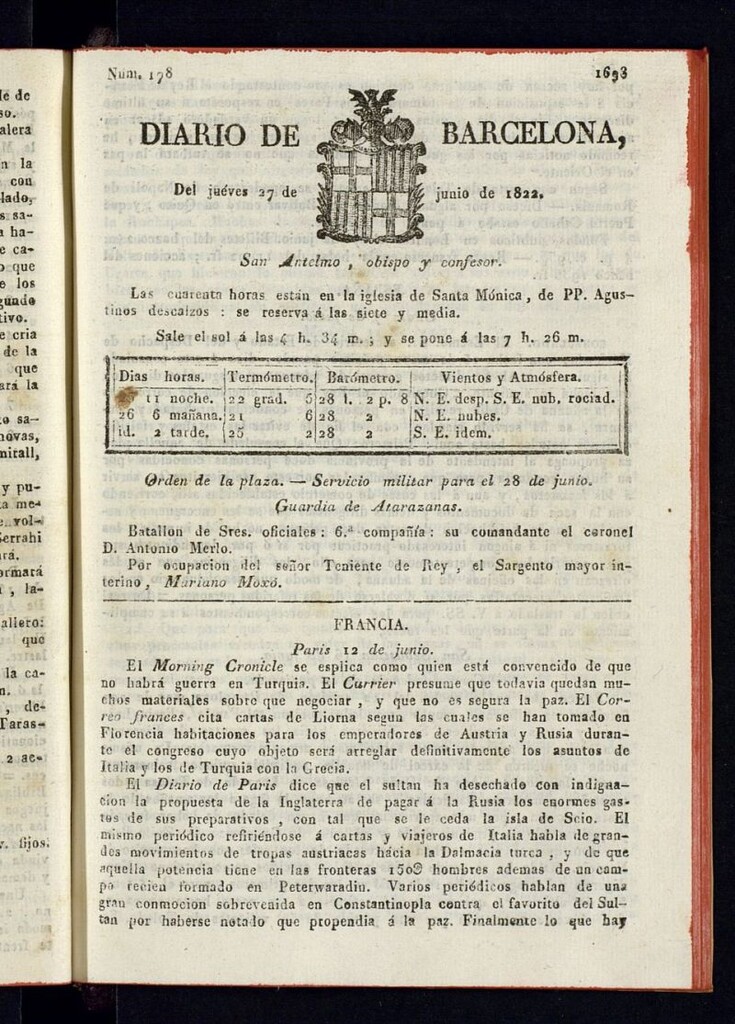 Núm. 178
1693
DIARIO DE BARCELONA,
Del juéves 27 de junio de 1822.
San Antelmo, obispo y confesor.
Las cuarenta horas están en la iglesia de Santa Mónica, de PP. Agus-
tinos descalzos : se reserva á las siete y media.
Sale el sol á las 4 h. 34 m. ; y se pone á las 7 h. 26 m.
Dias horas. Termómetro. Barómetro. Vientos y Atmósfera.
11 noche. 22 grad. 5 28 l. 2 p. 8 N. E. desp. S. E. nub. rociad.
26 6 mañana. 21 6 28 2 N. E. nubes.
id. 2 tarde. 25 2 28 2 S. E. idem.
Orden de la plaza. — Servicio militar para el 28 de junio.
Guardia de Atarazanas.
Batallon de Sres. oficiales : 6.ª compañía : su comandante el coronel
D. Antonio Merlo.
Por ocupacion del señor Teniente de Rey , el Sargento mayor in-
terino, Mariano Moxó.
FRANCIA.
Paris 12 de junio.
El Morning Cronicle se esplica como quien está convencido de que
no habrá guerra en Turquia. El Currier presume que todavia quedan mu-
chos materiales sobre que negociar , y que no es segura la paz. El Cor-
reo frances cita cartas de Liorna segun las cuales se han tomado en
Florencia habitaciones para los emperadores de Austria y Rusia duran-
te el congreso cuyo objeto será arreglar definitivamente los asuntos de
Italia y los de Turquia con la Grecia.
El Diario de Paris dice que el sultan ha desechado con indigna-
cion la propuesta de la Inglaterra de pagar á la Rusia los enormes gas-
tos de sus preparativos , con tal que se le ceda la isla de Scio. El
mismo periódico refiriéndose á cartas y viajeros de Italia habla de gran-
des movimientos de tropas austriacas hácia la Dalmacia turca , y de que
aquella potencia tiene en las fronteras hombres ademas de un cam-
po recien formado en Peterwaradin. Varios periódicos hablan de una
gran conmocion sobrevenida en Constantinopla contra el favorito del Sul-
tan por haberse notado que propendia á la paz. Finalmente lo que hay